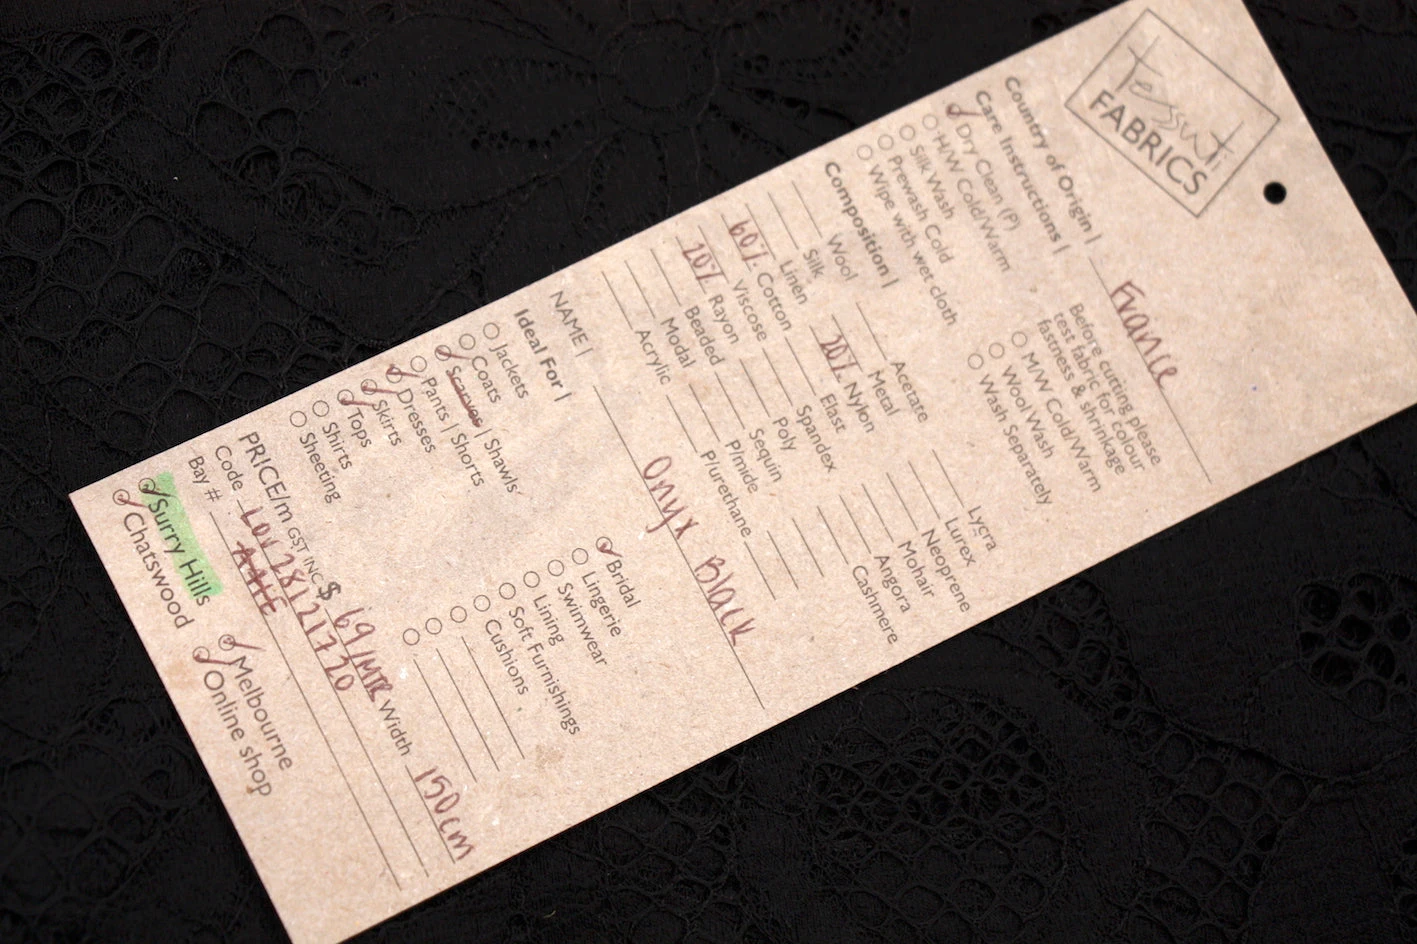 tessuti
FABRICS
Country of Origin | France
Care Instructions |
Dry Clean (P)
H/W Cold/Warm
Silk Wash
Prewash Cold
Wipe with wet cloth
Before cutting please
test fabric for colour
fastness & shrinkage
M/W Cold/Warm
Wool Wash
Wash Separately
Composition |
Wool Acetate Lycra
Silk Metal Lurex
Linen 20% Nylon Neoprene
60% Cotton Elast Mohair
Viscose Spandex Angora
20% Rayon Poly Cashmere
Beaded Sequin
Modal P/mide
Acrylic P/urethane
NAME | Onyx Black
Ideal For |
Jackets Bridal
Coats Lingerie
Scarves | Shawls Swimwear
Pants | Shorts Lining
Dresses Soft Furnishings
Skirts Cushions
Tops
Shirts
Sheeting
PRICE/m GST INC $ 69/MTR Width 150cm
Code
Bay #
Surry Hills Melbourne
Chatswood Online shop